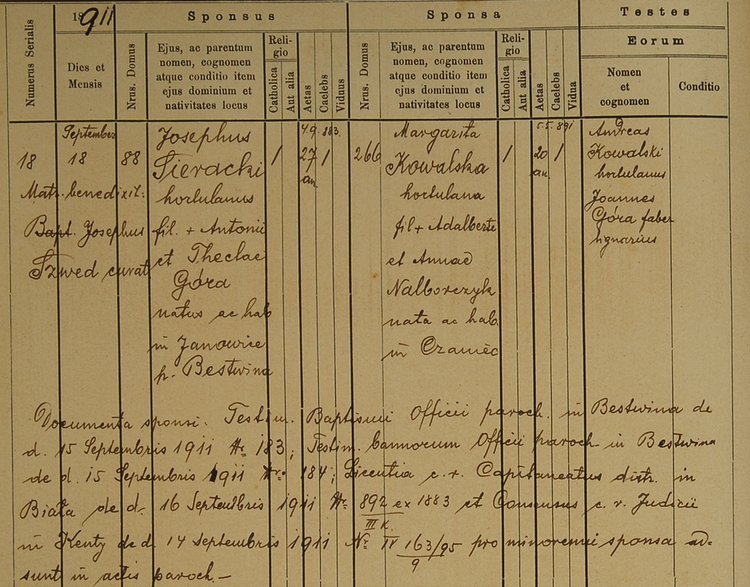 1911
Sponsus
Sponsa
Testes
Numerus Serialis
Dies et
Mensis
Nrus. Domus
Ejus, ac parentum
nomen, cognomen
atque conditio item
ejus dominium et
nativitatis locus
Reli-
gio
Catholica
Aut alia
Aetas
Caelebs
Viduus
Nrus. Domus
Ejus, ac parentum
nomen, cognomen
atque conditio item
ejus dominium et
nativitates locus
Reli-
gio
Catholica
Aut alia
Aetas
Caelebs
Vidua
Eorum
Nomen
et
cognomen
Conditio
September
18 18 88
Matr. benedixit:
Bapt. Josephus
Szwed curat
Josephus
Sieracki
hortulanus
fil. + Antonii
et Theclae
Góra
natus ac hab
in Janowice
p. Bestwina
1
27
an.
1
266
Margarita
Kowalska
hortulana
fil + Adalberti
et Annae
Nalborczyk
nata ac hab.
in Czaniec
1
20
an.
1
Andreas
Kowalski
hortulanus
Joannes
Góra faber
lignarius
Documenta sponsi. Testim. Baptismi Officii paroch. in Bestwina de
d. 15 Septembris 1911 Nr. 183; Testim. bannorum Officii paroch in Bestwina
de d. 15 Septembris 1911 Nr. 184; Licentia c. r. Capitaneatus distr. in
Biała de d. 16 Septembris 1911 Nr. 892 ex 1883 et Consensus c. r. Judicii
III K.
in Kenty de d. 14 Septembris 1911 Nr. IV 163/95 pro minorenni sponsa ad-
9
sunt in actis paroch. —